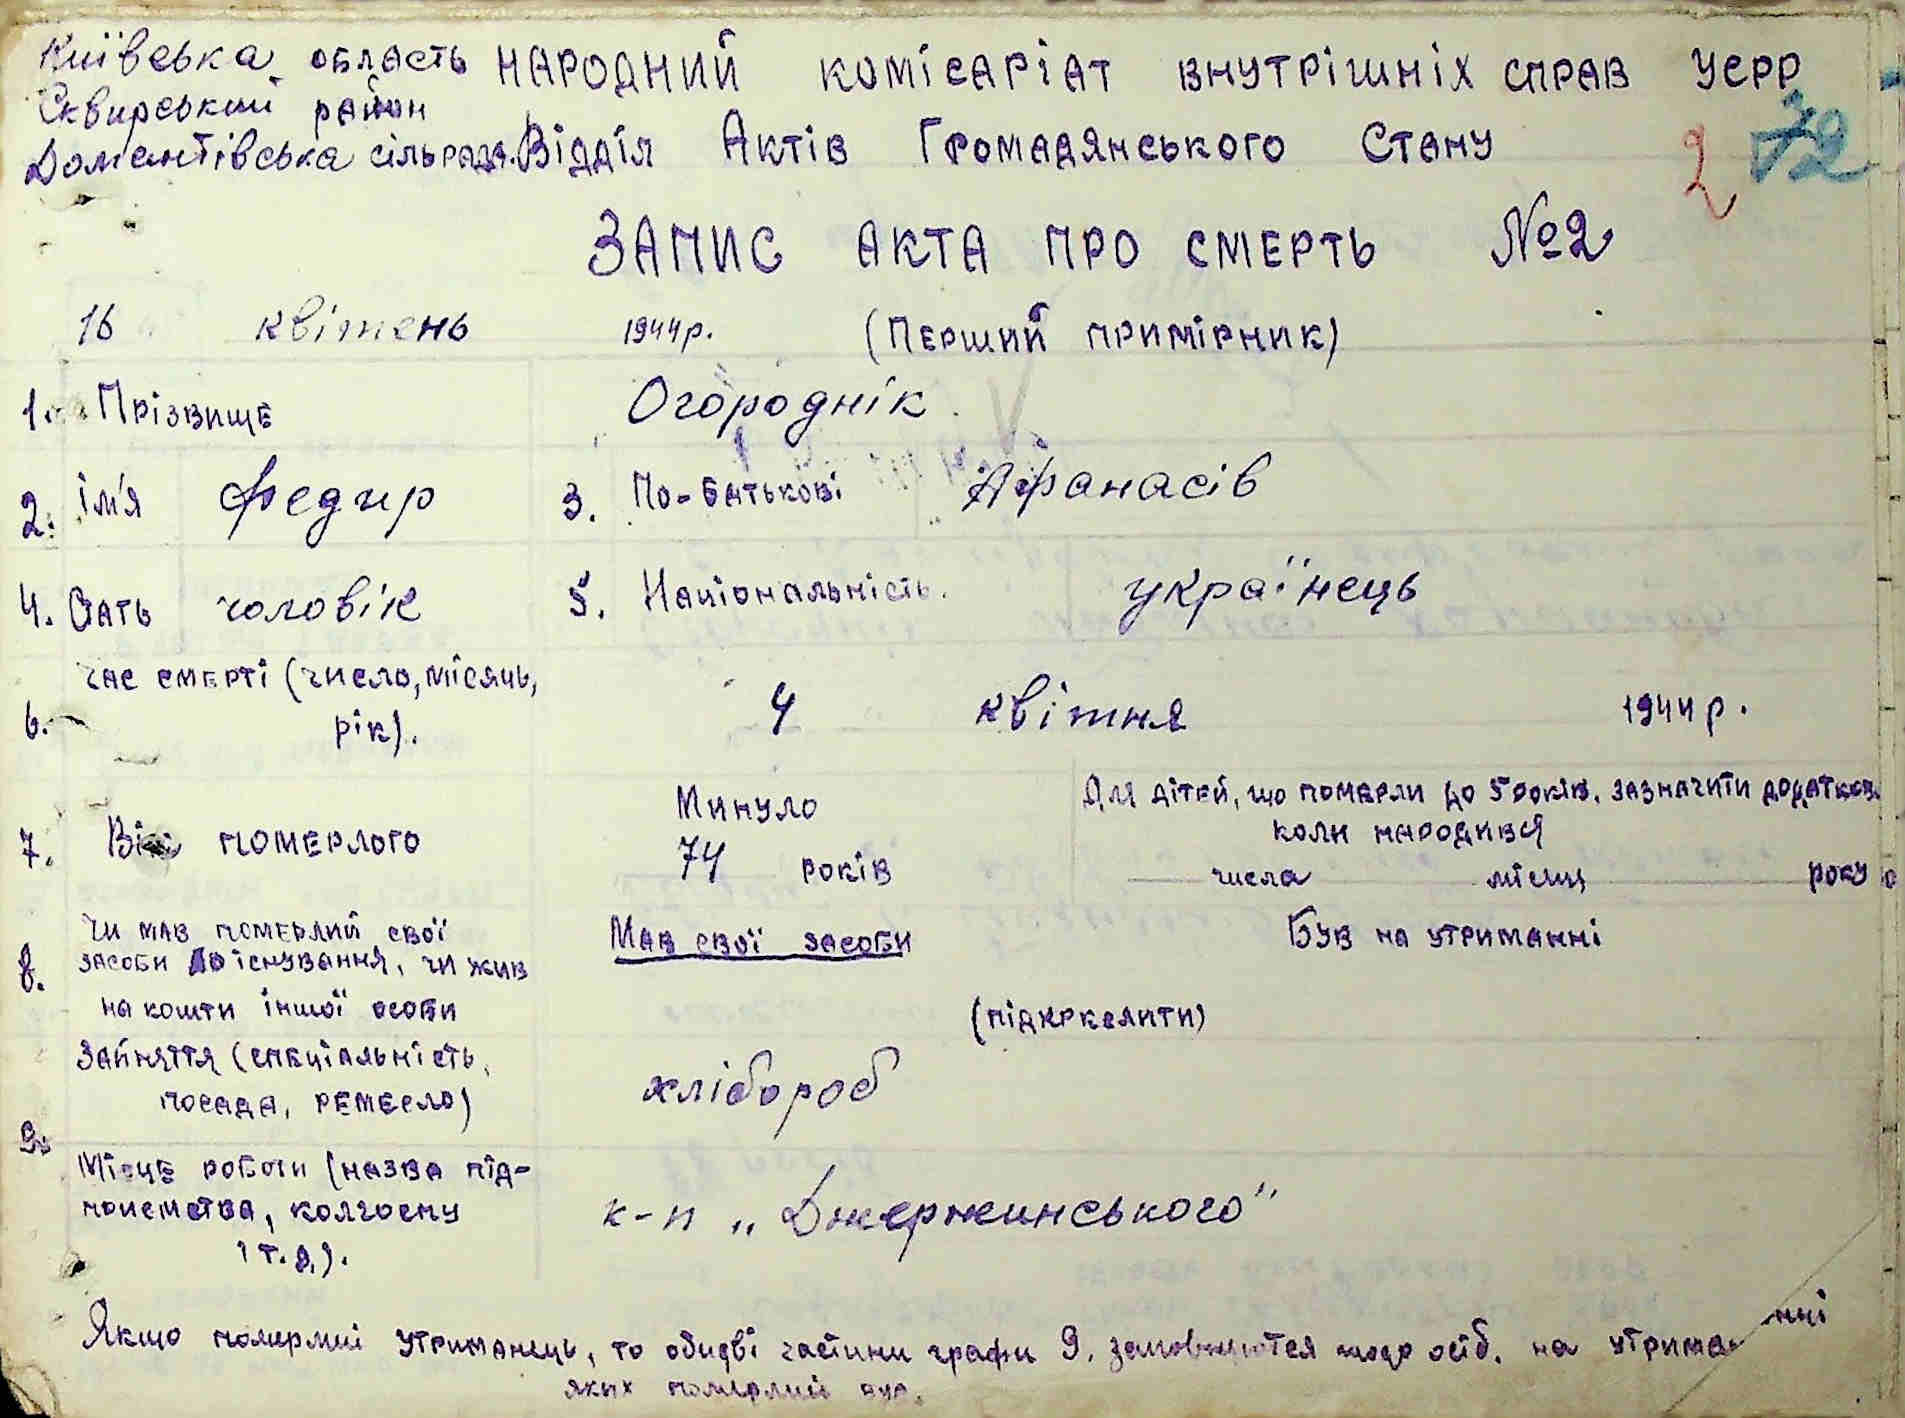 Київська область НАРОДНИЙ КОМІСАРІАТ ВНУТРІШНІХ СПРАВ УСРР
Сквирський район
Домантівська сільрада. Відділ Актів Громадянського Стану 2 72
ЗАПИС АКТА ПРО СМЕРТЬ №2
16 квітень 1944р. (Перший примірник)
1. Прізвище Огороднік
2. ім'я Федир 3. По-батькові Афанасів
4. Стать чоловік 5. Національність. українець
6. час смерті (число, місяць, рік). 4 квітня 1944р.
7. Вік померлого Минуло 74 років
Для дітей, що померли до 5 років, зазначити додатков.
коли народився
числа місяц року
8. Чи мав померлий свої
засоби до існування, чи жив
на кошти іншої особи
Мав свої засоби Був на утриманні
(підкреслити)
9. Зайняття (спеціальність,
посада, ремесло) хлібороб
Місце роботи (назва під-
приємства, колгоспу
і т.д.). к-п „Джержинського"
Якщо померлий утриманець, то обидві частини графи 9. заповнюються щодо осіб. на утриманні
яких померлий був.